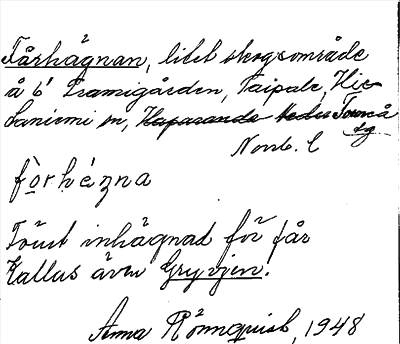 Fårhägnan, litet skogsområde
å 61 Framigården, Taipale, Hie-
taniemi sn, Haparanda Neder Torneå
Norrb. l
fȯrhéᶇna
Förut inhägnad för får
Kallas även Gryvjen!
Anna Rönnquist, 1948